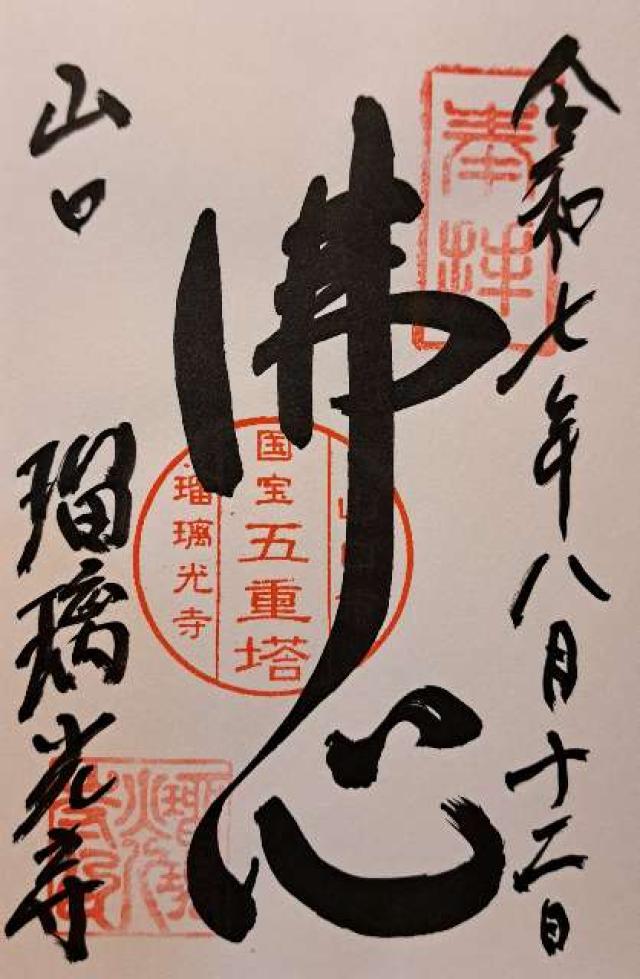 令和七年八月十二日
奉拝
佛心
国宝
五重塔
瑠璃光寺
山口
瑠璃光寺